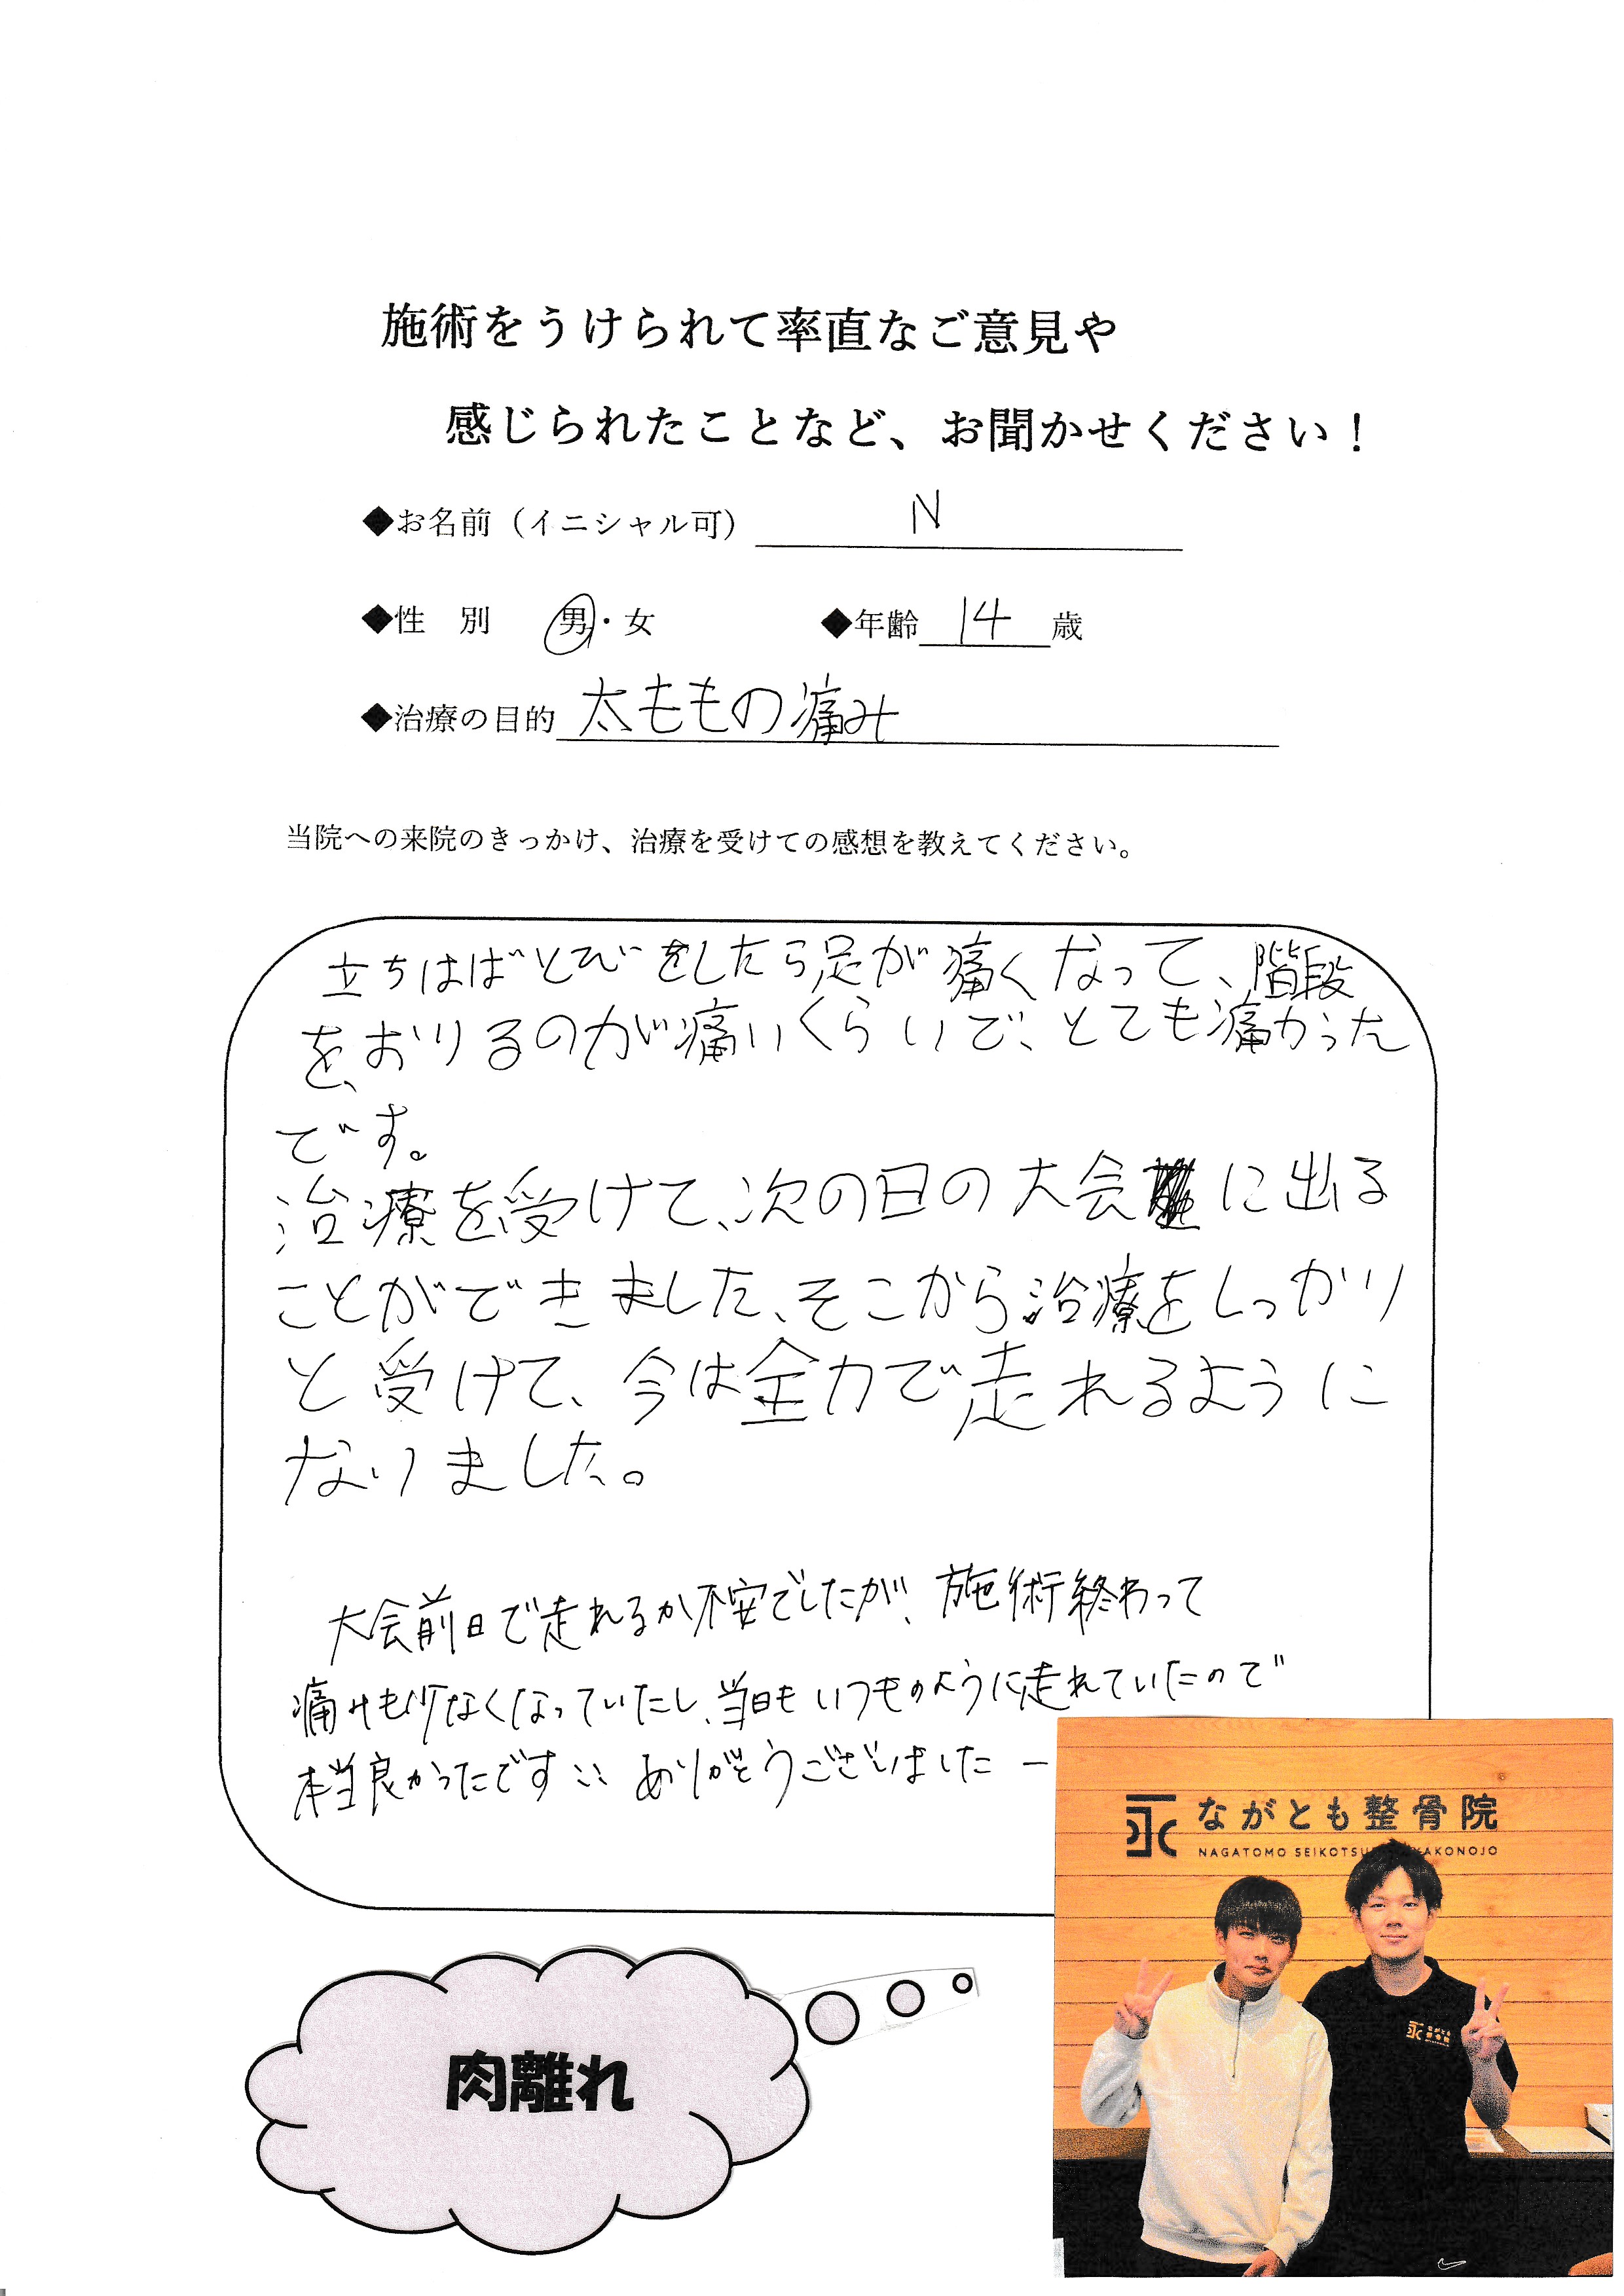 施術をうけられて率直なご意見や
感じられたことなど、お聞かせください！
◆お名前（イニシャル可） N
◆性　別　男・女　◆年齢 14 歳
◆治療の目的 太ももの痛み
当院への来院のきっかけ、治療を受けての感想を教えてください。
立ちはばとびをしたら足が痛くなって、階段
を、おりるのが痛いくらいで、とても痛かった
です。
治療を受けて、次の日の大会に出る
ことができました、そこから治療をしっかり
と受けて、今は全力で走れるように
なりました。
大会前日で走れるか不安でしたが、施術終わって
痛みも少なくなっていたし、当日もいつものように走れていたので
本当良かったです:: ありがとうございましたー
永 ながとも整骨院
NAGATOMO SEIKOTSU AKONOJO
永 ながとも
整骨院
肉離れ